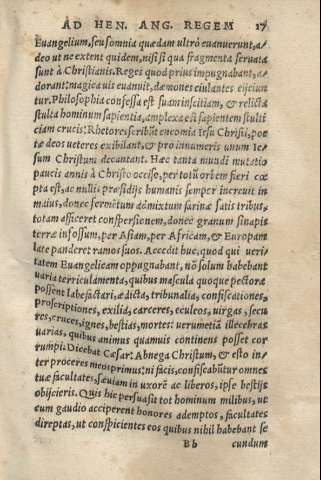 AD HEN. ANG. REGEM 17
Euangelium, seu somnia quædam ultrò euanuerunt, a=
deo ut ne extent quidem, nisi si qua fragmenta seruata
sunt à Christianis. Reges quod prius impugnabant, a=
dorant: magica uis euanuit, dæmones eiulantes eijciun
tur. Philosophia confessa est suam inscitiam, & relicta
stulta hominum sapientia, amplexa est sapientem stulti
ciam crucis: Rhetores scribũt encomia Iesu Christi, poe
tæ deos ueteres exibilant, & pro innumeris unum Ie=
sum Christum decantant. Hæc tanta mundi mutatio
paucis annis à Christo occiso, per totũ orbem fieri cœ
pta est, ac nullis præsidijs humanis semper increuit in
maius, donec fermẽtum admixtum farinæ satis tribus,
totam afficeret conspersionem, donec granum sinapis
terræ infossum, per Asiam, per Africam, & Europam
late panderet ramos suos. Accedit huc, quod qui ueri=
tatem Euangelicam oppugnabant, nõ solum habebant
uaria terriculamenta, quibus mascula quoque pectora
possent labefactari, ædicta, tribunalia, confiscationes,
proscriptiones, exilia, carceres, eculeos, uirgas, secu
res, cruces, ignes, bestias, mortes: uerumetiã illecebras
uarias, quibus animus quamuis continens posset cor
rumpi. Dicebat Cæsar: Abnega Christum, & esto in=
ter proceres meos primus: ni facis, confiscabũtur omnes
tuæ facultates, sæuiam in uxorẽ ac liberos, ipse bestijs
obijcieris. Quis hic persuasit tot hominum milibus, ut
cum gaudio acciperent honores ademptos, facultates
direptas, ut conspicientes eos quibus nihil habebant se
Bb cundum